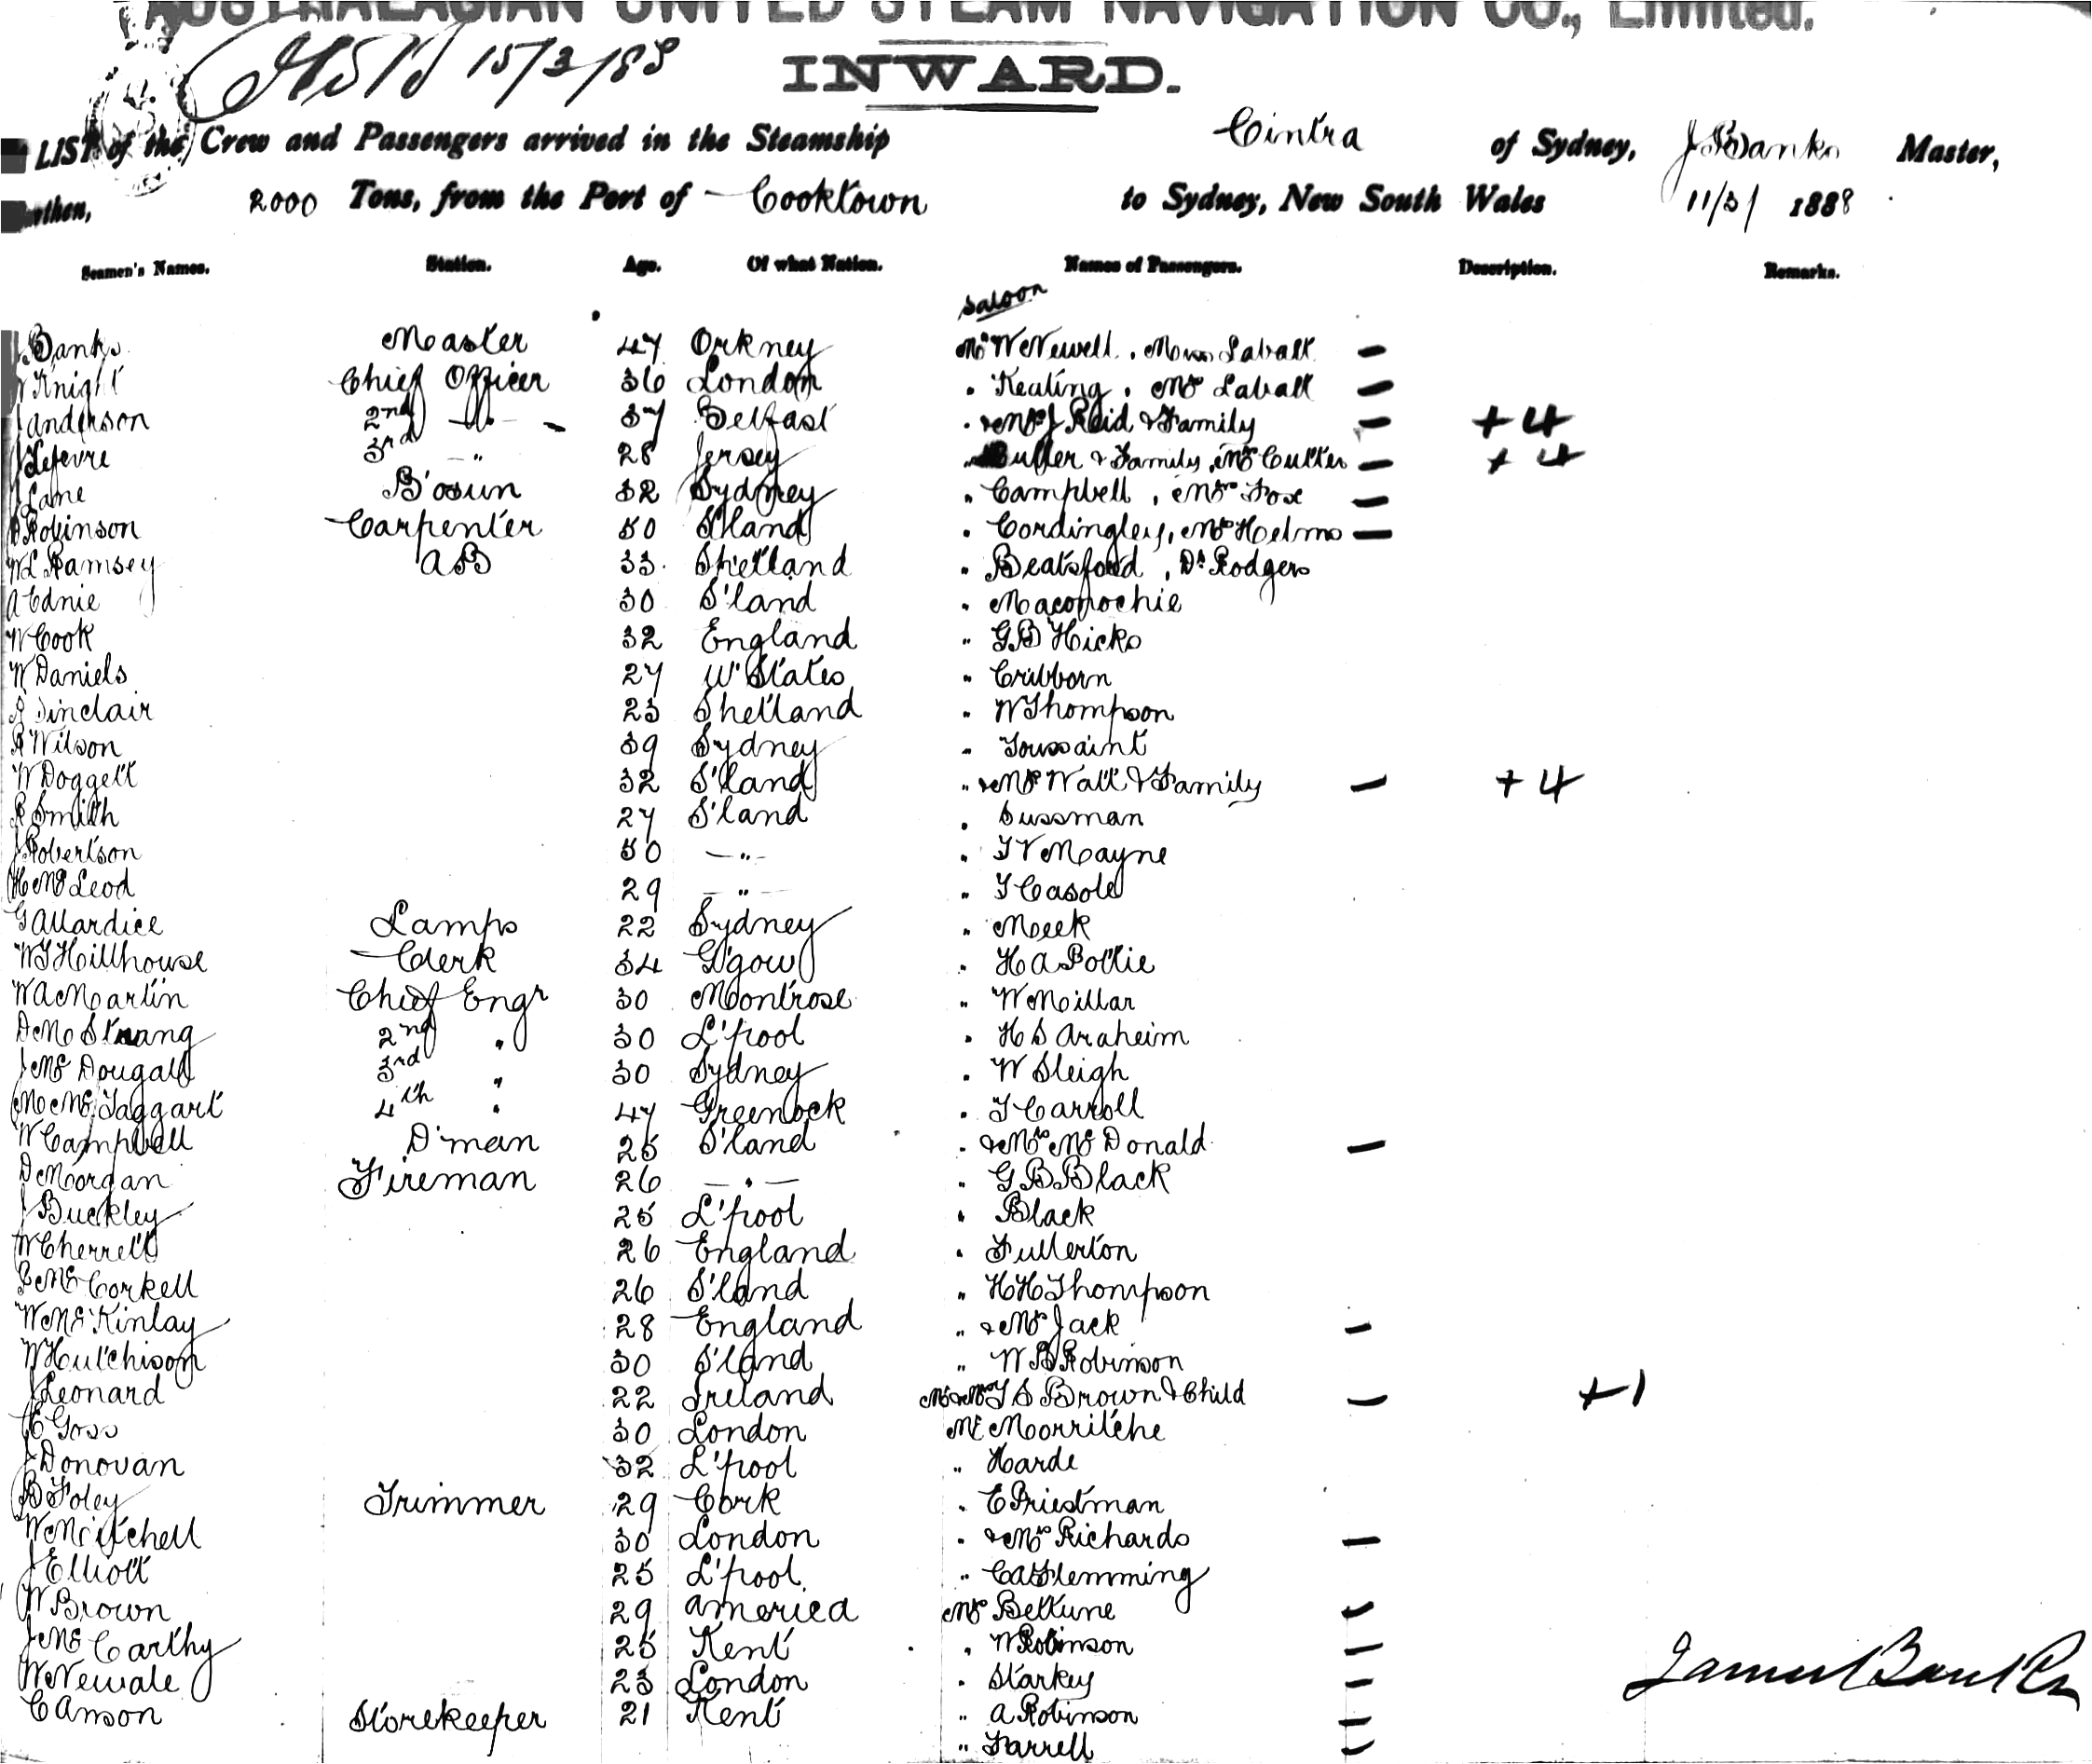 AUSTRALASIAN UNITED STEAM NAVIGATION CO., Limited.
15/3/88
INWARD.
LIST of the Crew and Passengers arrived in the Steamship Cintra of Sydney, J Banks Master,
Burthen, 2000 Tons, from the Port of Cooktown to Sydney, New South Wales 11/3/ 1888
Seamen's Names. Station. Age. Of what Nation. Names of Passengers. Description. Remarks.
Saloon
J Banks Master 47 Orkney Mr W Newell. Miss Labatt —
Knight Chief Officer 36 London " Keating. Mrs Labatt —
J Anderson 2nd —"— 37 Belfast " & Mrs J Reid & Family — +4
J Lefevre 3rd —" 28 Jersey " Butler & Family, Mrs Cutter — +4
J Lane B'osun 32 Sydney " Campbell, Mrs Fox —
D Robinson Carpenter 50 S'land " Cordingley, Mrs Helms —
W L Ramsey AB 33 Shetland " Beatsford, Dr Rodgers
A Ednie 30 S'land " Maconochie
W Cook 32 England " G B Hicks
W Daniels 27 U' States " Cribborn
Sinclair 23 Shetland " W Thompson
R Wilson 39 Sydney " Toussaint
W Doggett 32 S'land " & Mrs Watt & Family — +4
R Smith 27 S'land " Sussman
J Robertson 50 —"— " T V Mayne
H McLeod 29 —"— " T Casole
G Allardice Lamps 22 Sydney " Meek
W T Hillhouse Clerk 34 G'gow " H A Bottie
W A Martin Chief Engr 30 Montrose " W Millar
D M Strang 2nd " 30 L'pool " H S Araheim
J McDougall 3rd " 30 Sydney " W Sleigh
M McTaggart 4th " 47 Greenock " T Carroll
W Campbell D'man 25 S'land " & Mrs McDonald —
D Morgan Fireman 26 —"— " G B Black
J Buckley 25 L'pool " Black
W Cherrett 26 England " Fullerton
McCorkell 26 S'land " H H Thompson
W McKinlay 28 England " & Mrs Jack —
W Hutchison 30 S'land " W B Robinson
J Leonard 22 Ireland Mr & Mrs T S Brown & Child — +1
E Goss 30 London Mr Morritche
J Donovan 32 L'pool " Harde
B Foley Trimmer 29 Cork " E Priestman
W Mitchell 30 London " & Mrs Richards —
J Elliott 25 L'pool " C A Flemming
W Brown 29 America Mrs Bettune —
J McCarthy 25 Kent " W Robinson —
W Newale 23 London " Starkey —
C Amson Storekeeper 21 Kent " A Robinson —
" Farrell —
James Banks